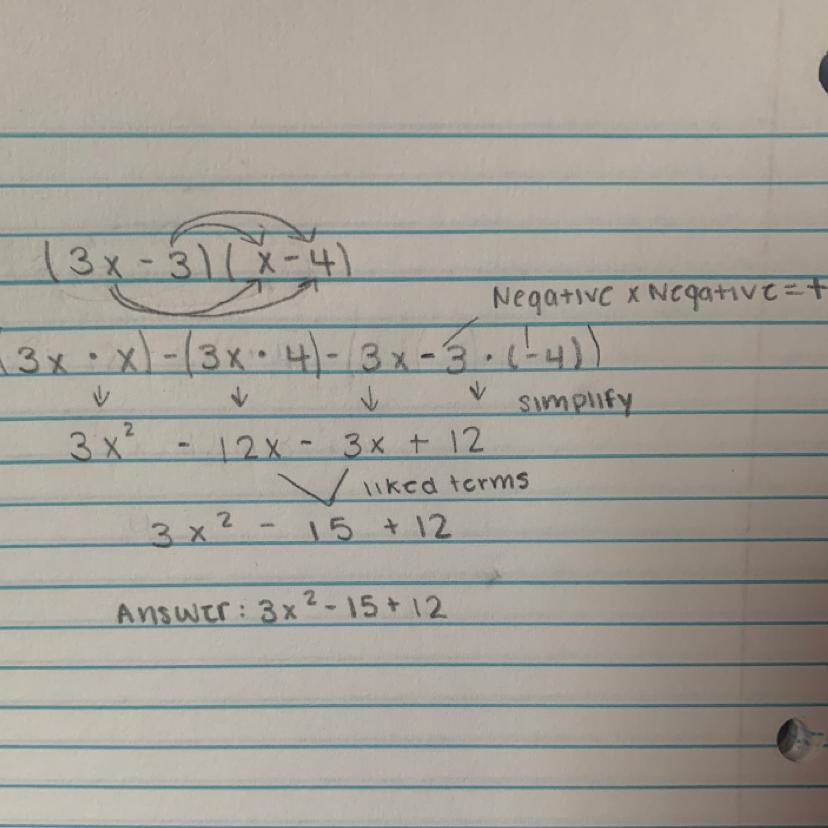 (3x - 3)(x - 4)
Negative x Negative = +
(3x · x) - (3x · 4) - (3x - 3 · (-4))
simplify
3x² - 12x - 3x + 12
liked terms
3x² - 15 + 12
Answer: 3x² - 15 + 12